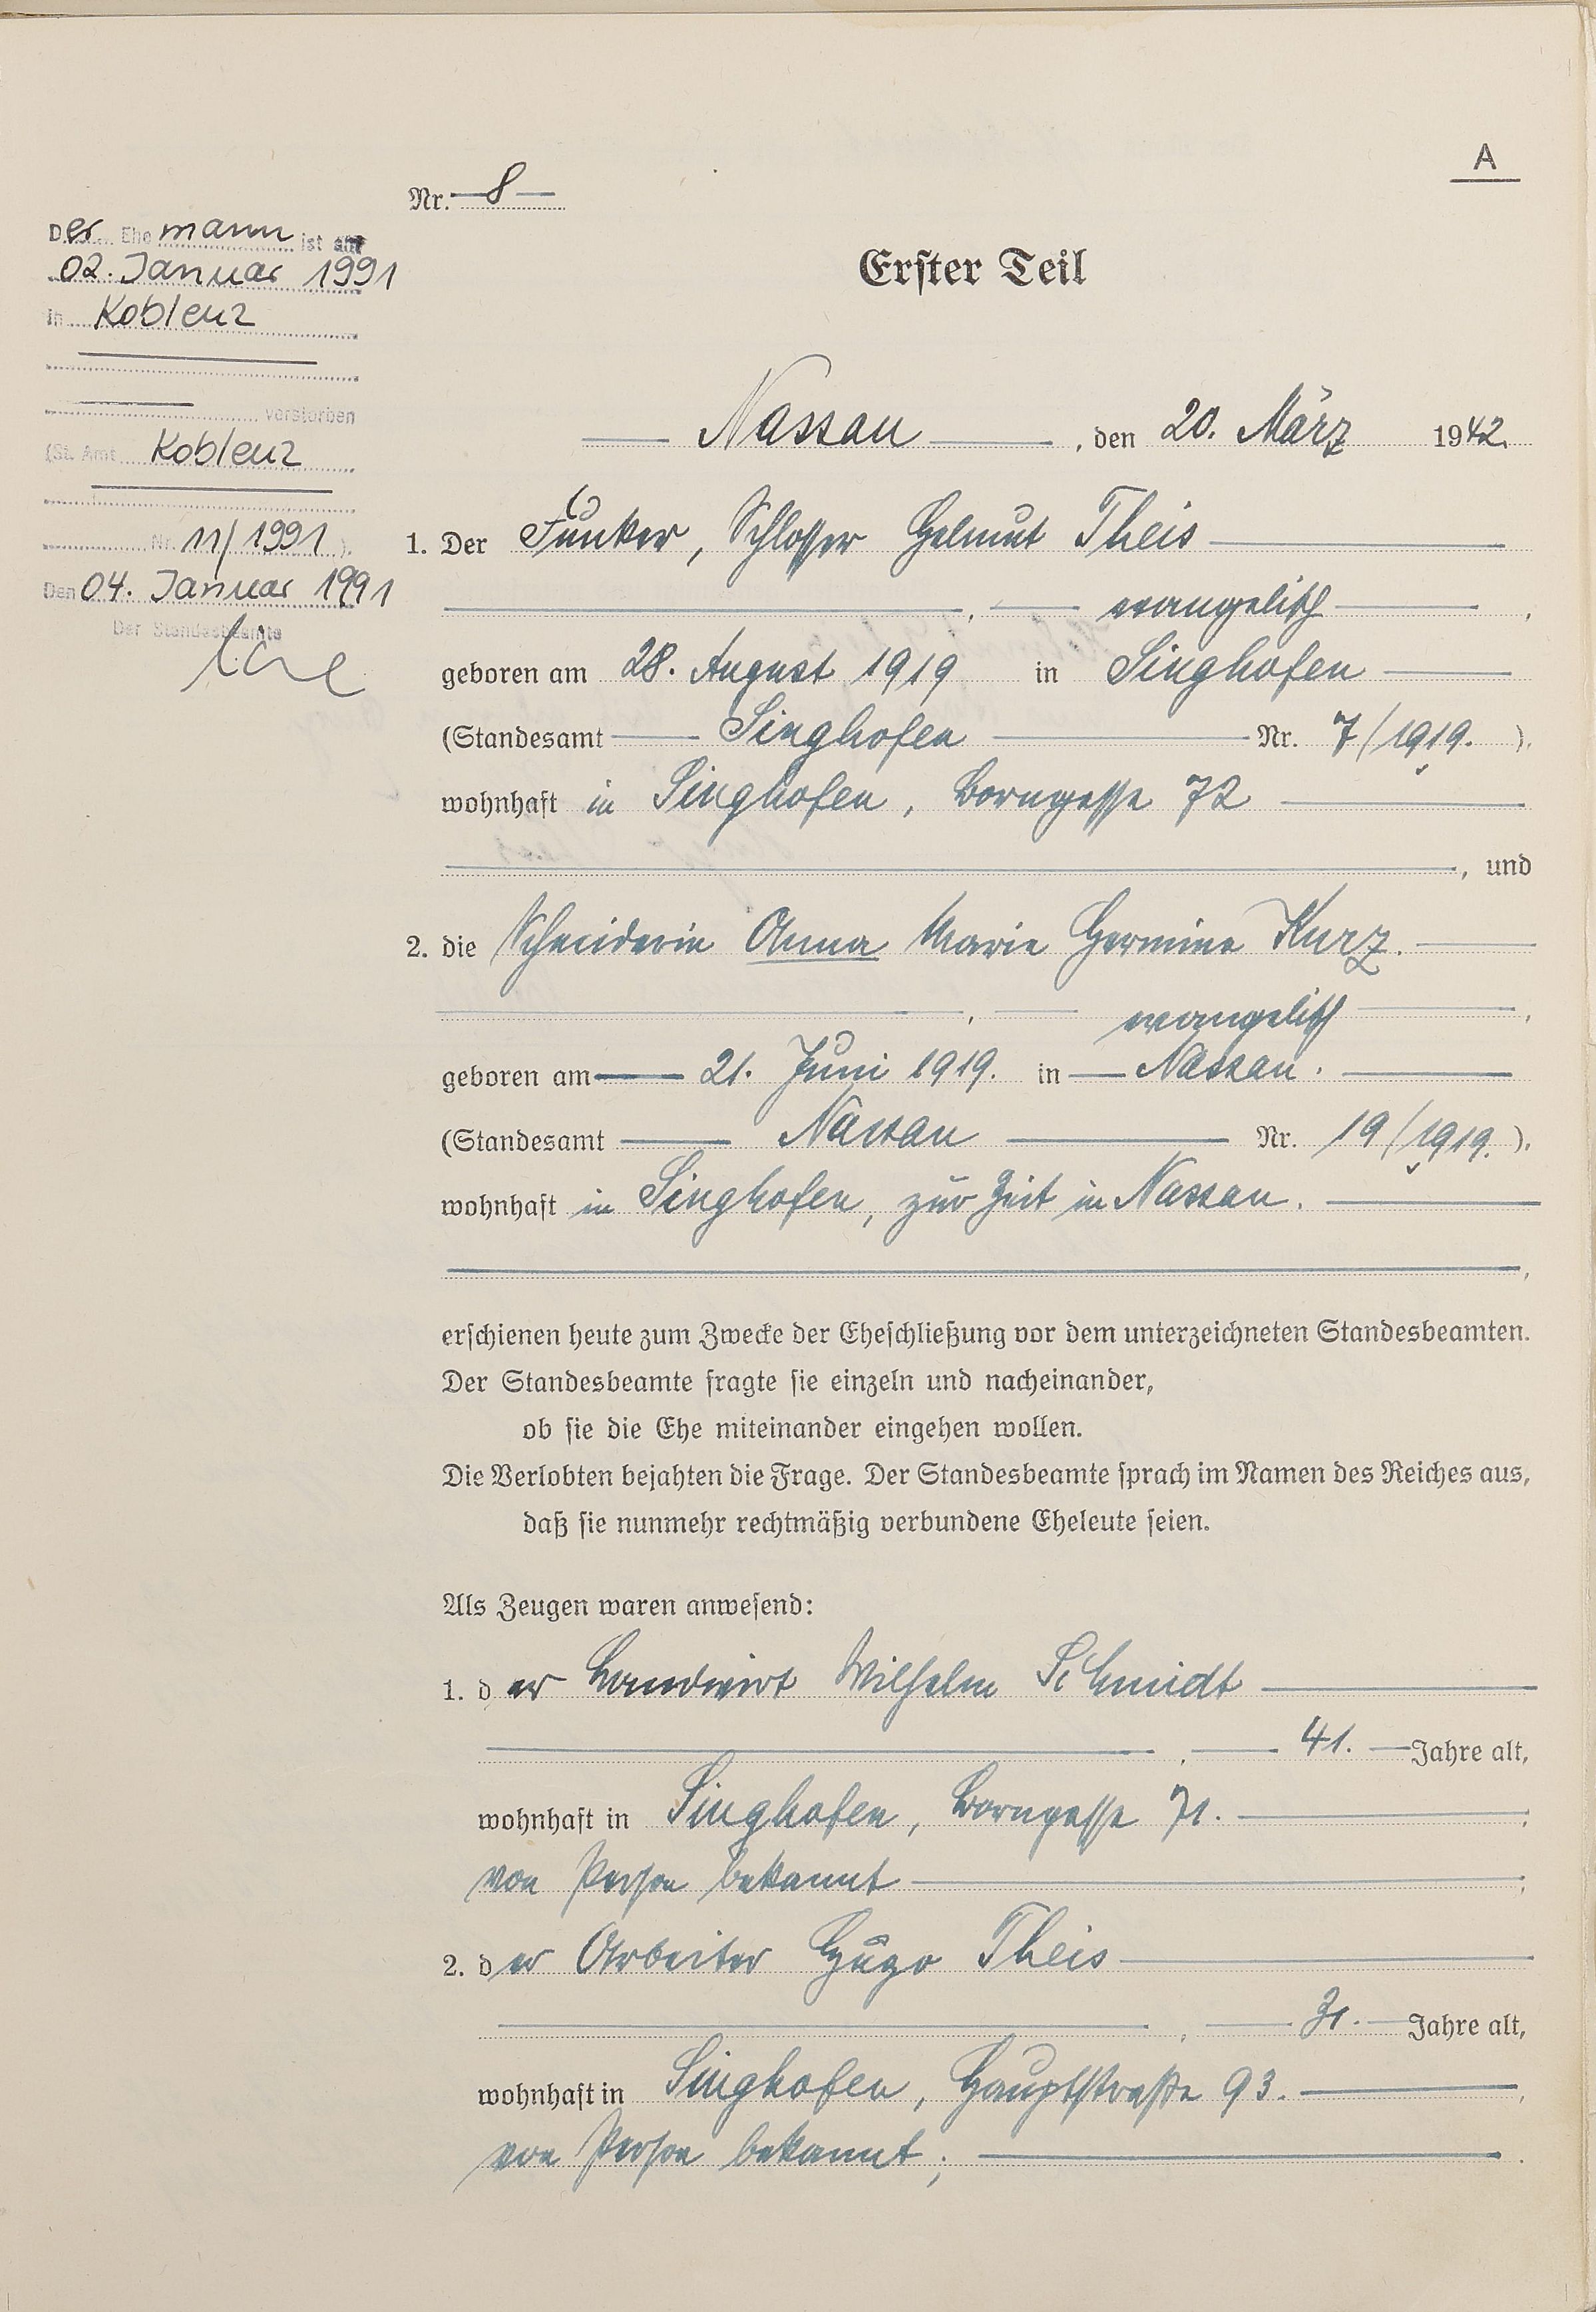 A
Nr. 8
Der Ehemann ist am
02. Januar 1991
in Koblenz
verstorben
(St. Amt Koblenz
Nr. 11/1991).
Den 04. Januar 1991
Der Standesbeamte
Erster Teil
Nassau, den 20. März 1942.
1. Der Funker, Schlosser Helmut Theis
, evangelisch,
geboren am 28. August 1919 in Singhofen
(Standesamt Singhofen Nr. 7/1919. ),
wohnhaft in Singhofen, Borngasse 72
, und
2. die Schneiderin Anna Marie Hermine Kurz.
, evangelisch,
geboren am 21. Juni 1919. in Nassau.
(Standesamt Nassau Nr. 19/1919. ),
wohnhaft in Singhofen, zur Zeit in Nassau.
,
erschienen heute zum Zwecke der Eheschließung vor dem unterzeichneten Standesbeamten.
Der Standesbeamte fragte sie einzeln und nacheinander,
ob sie die Ehe miteinander eingehen wollen.
Die Verlobten bejahten die Frage. Der Standesbeamte sprach im Namen des Reiches aus,
daß sie nunmehr rechtmäßig verbundene Eheleute seien.
Als Zeugen waren anwesend:
1. der Landwirt Wilhelm Schmidt
, 41. Jahre alt,
wohnhaft in Singhofen, Borngasse 71. ,
von Person bekannt ;
2. der Arbeiter Hugo Theis
, 31. Jahre alt,
wohnhaft in Singhofen, Hauptstraße 93. ,
von Person bekannt; .